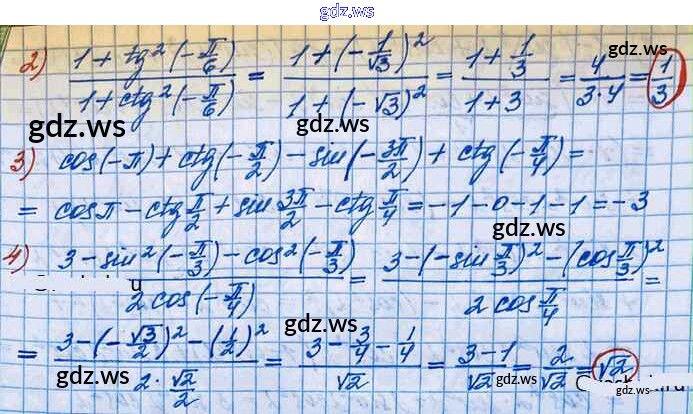 gdz.ws
gdz.ws
2) (1 + tg²(-π/6))/(1 + ctg²(-π/6)) = (1 + (-1/√3)²)/(1 + (-√3)²) = (1 + 1/3)/(1 + 3) = 4/(3·4) = 1/3
gdz.ws gdz.ws gdz.ws
3) cos(-π) + ctg(-π/2) - sin(-3π/2) + ctg(-π/4) =
= cosπ - ctg π/2 + sin 3π/2 - ctg π/4 = -1 - 0 - 1 - 1 = -3
gdz.ws
4) (3 - sin²(-π/3) - cos²(-π/3))/(2 cos(-π/4)) = (3 - (-sin π/3)² - (cos π/3)²)/(2 cos π/4) =
gdz.ws
= (3 - (-√3/2)² - (1/2)²)/(2 · √2/2) = (3 - 3/4 - 1/4)/√2 = (3 - 1)/√2 = 2/√2 = √2
gdz.ws gdz.ws
gdz.ws